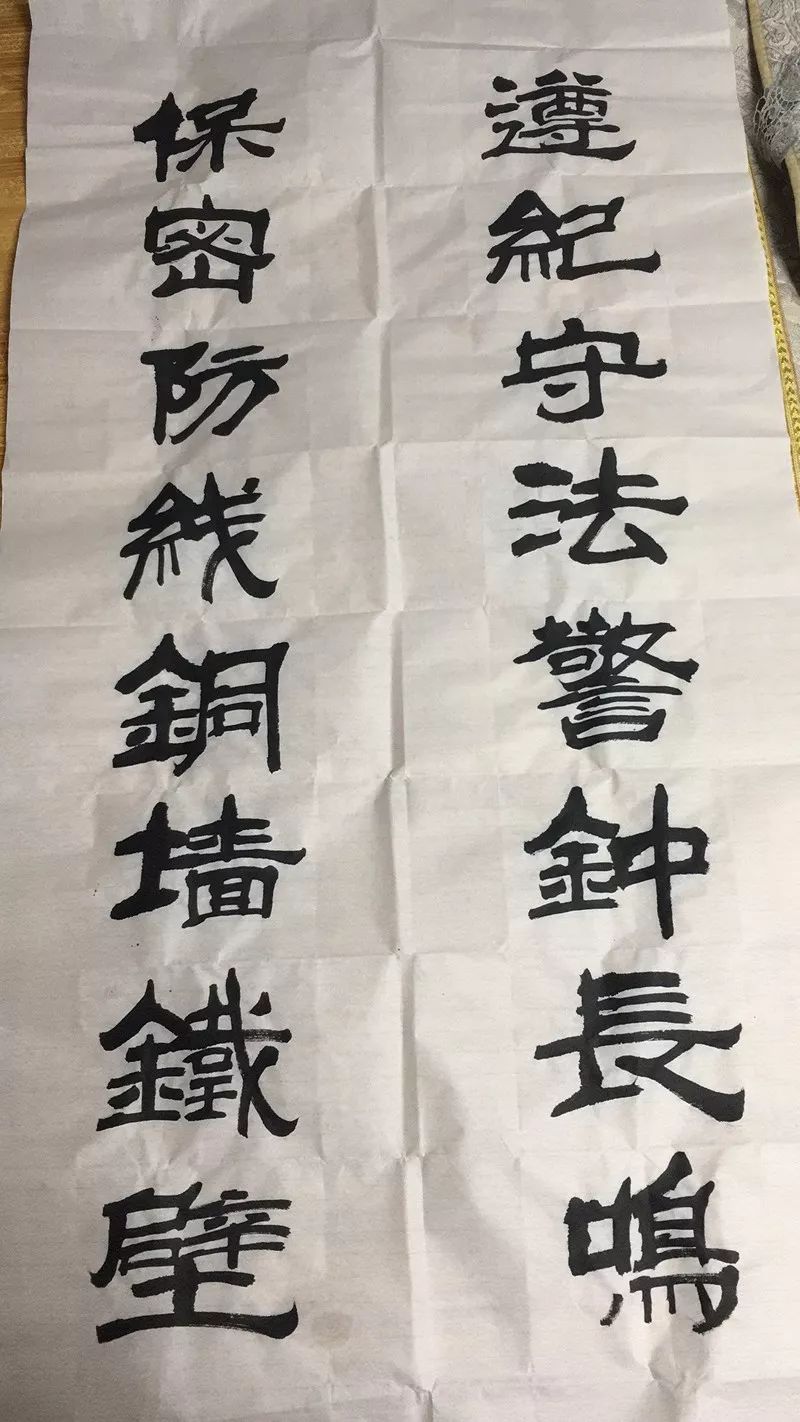 遵紀守法警鈡長鳴
保密防线銅墙鐵壁